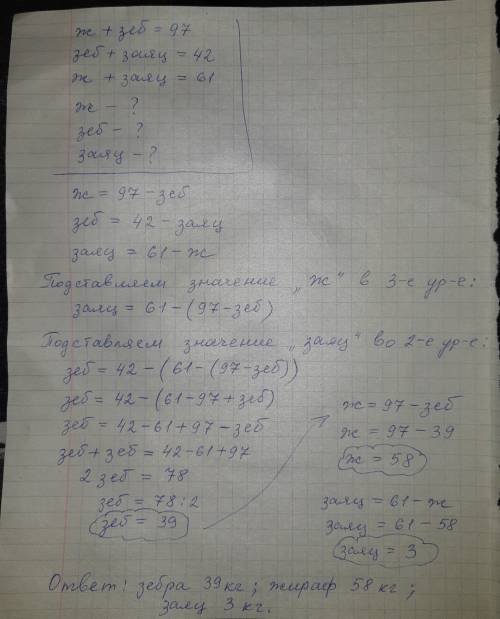 ж + зеб = 97
зеб + заяц = 42
ж + заяц = 61
ж - ?
зеб - ?
заяц - ?
ж = 97 - зеб
зеб = 42 - заяц
заяц = 61 - ж
Подставляем значение „ж“ в 3-е ур-е:
заяц = 61 - (97 - зеб)
Подставляем значение „заяц“ во 2-е ур-е:
зеб = 42 - (61 - (97 - зеб))
зеб = 42 - (61 - 97 + зеб)
зеб = 42 - 61 + 97 - зеб
зеб + зеб = 42 - 61 + 97
2 зеб = 78
зеб = 78 : 2
зеб = 39
ж = 97 - зеб
ж = 97 - 39
ж = 58
заяц = 61 - ж
заяц = 61 - 58
заяц = 3
Ответ: зебра 39 кг; жираф 58 кг;
заяц 3 кг.